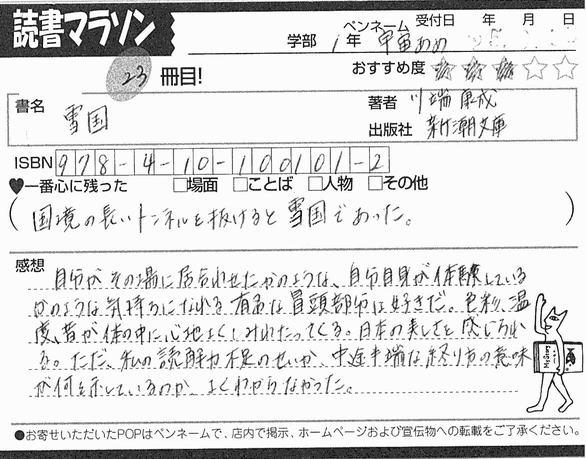 読書マラソン
学部 1年 ペンネーム 甲宙あめ 受付日 年 月 日
23 冊目! おすすめ度 ★★★☆☆
書名 雪国
著者 川端康成
出版社 新潮文庫
ISBN 978-4-10-100101-2
♥一番心に残った □場面 □ことば □人物 □その他
(国境の長いトンネルを抜けると雪国であった。)
感想
自分がその場に居合わせたかのような、自分自身が体験している
かのような気持ちになれる有名な冒頭部分は好きだ。色彩、温
度、音が体の中に心地よくしみわたってくる。日本の美しさを感じられ
る。ただ、私の読解力不足のせいか、中途半端な終り方の意味
が何を示しているのか、よくわからなかった。
●お寄せいただいたPOPはペンネームで、店内で掲示、ホームページおよび宣伝物への転載をご了承ください。